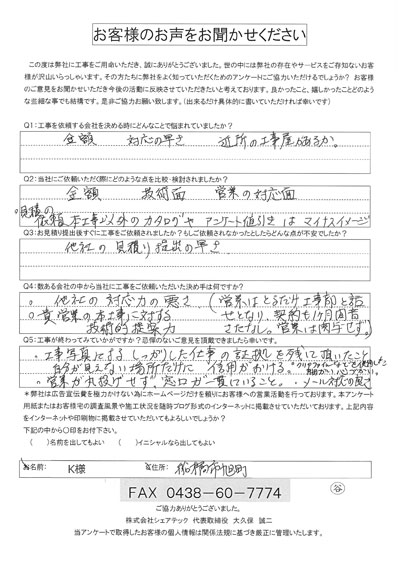 お客様のお声をお聞かせください
この度は弊社に工事をご用命いただき、誠にありがとうございました。世の中には弊社の存在やサービスをご存知ないお客
様が沢山いらっしゃいます。その方たちに弊社をよく知っていただくためのアンケートにご協力いただけるでしょうか? お客様
のご意見をお聞かせいただき今後の活動に反映させていただきたいと考えております。良かったこと、嬉しかったことどのよう
な些細な事でも結構です。是非ご協力お願い致します。(出来るだけ具体的に書いていただければ幸いです)
Q1:工事を依頼する会社を決める時にどんなことで悩まれていましたか?
金額 対応の早さ 近所の工事屋があるか。
Q2:当社にご依頼いただく際にどのような点を比較・検討されましたか?
金額 技術面 営業の対応面
見積の
依頼本工事以外のカタログや アンケート値引き は マイナスイメージ
Q3:お見積り提出後すぐに工事をご依頼されましたか?もしご依頼されなかったとしたらどんな点が不安でしたか?
他社の見積り提出の早さ
Q4:数ある会社の中から当社に工事をご依頼いただいた決め手は何ですか?
。他社の対応力の悪さ (営業はとるだけ 工事部と話
。貴営業の本工事に対する
技術的提案力
Q5:工事が終わってみていかがですか?忌憚のないご意見を頂戴できましたら幸いです。
・工事写真による しっかりした仕事の証拠を残して頂いたこと
自分が見えない場所だけに 信用がおける。
・営業が丸投げせず 窓口が一貫していること。
*弊社は広告宣伝費を極力かけない為にホームページだけを頼りにお客様への営業活動を行っております。本アンケート
用紙またはお客様宅の調査風景や施工状況を随時ブログ形式のインターネットに掲載させていただいております。上記内容
をインターネットや印刷物に掲載させていただいてもよろしいでしょうか?
下記の中から〇印をお付下さい。
( )名前を出してもよい ( )イニシャルなら出してもよい
お名前: K様 ご住所:
FAX 0438-60-7774
ご協力ありがとうございました。
株式会社シェアテック 代表取締役 大久保 誠二
当アンケートで取得したお客様の個人情報は関係法規に基づき厳正に管理いたします。